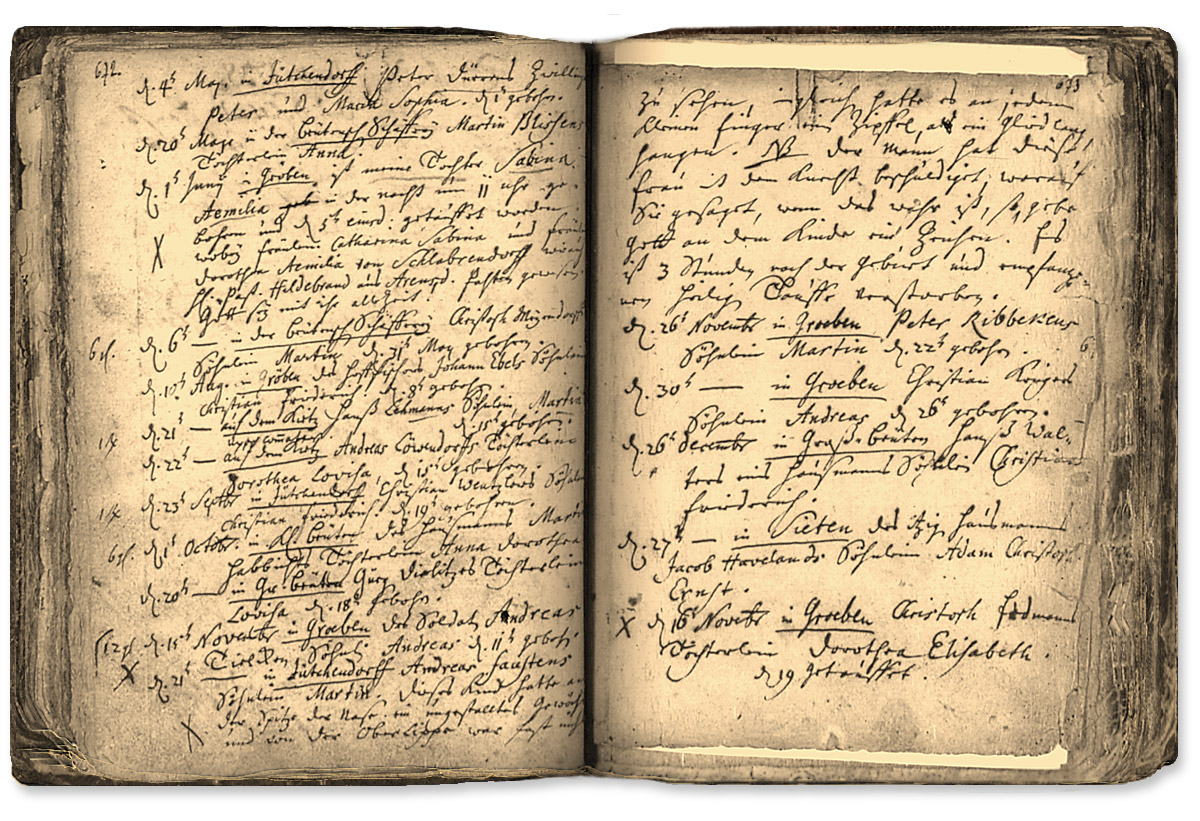 672.
d. 4t May. in Jütchendorff Peter Dürrens Zwilling
Peter und Maria Sophia. d. 1t gebohr.
d. 20t May in der beutensch Schäfferey Martin Blisens
Töchterlein Anna
d. 1t Juny in Gröben ist meine Tochter Sabina
Aemilia in der nacht um 11 uhr ge-
bohren und d. 5t eiusd. getauffet worden
wobey fräulein Catharina Sabina und fräulein
Dorothea Aemilia von Schlabrendorff
H. Past. Hildebrand aus Arensd. Pahten gewesen
Gott sey mit ihr allezeit.
d. 6t — in der beutensch Schäfferey Christoph
Söhnlein Martin d. 31t May gebohren.
Aug. in Gröben des Johann Ebels Söhnlein
Christian Friederich. d. 8t gebohren.
d. 21t — auf dem Kietz Hanß Lehmanns Söhnlein, Martin
d. 15t gebohren.
d. 22t — auf dem Kietz Andreas Löwendorffs Töchterlein
Dorothea Lovisa d. 15t gebohren.
d. 23t Septbr in Jütchendorff Christian Wentzlows Söhnlein
Christian Friederich. d. 19t gebohren.
d. 1t Octobr. in beuten des Haußmanns Martin
Habbichts Töchterlein Anna Dorothea
d. 20t — in Gr. beuten Gürg Töchterlein
Lovisa d. 18t gebohr.
d. 15t Novembr in Groeben des Soldat Andreas
Söhnl. Andreas d. 11t gebohr.
d. 21t in Jütchendorff Andreas Faustens
Söhnlein Martin. dieses Kind hatte an
der Spitze der Nase ein ungestaltes Gewächs
und von der Oberlippe war fast nichts
673
zu sehen, ingleich hatte es an jedem
kleinen finger ein Zipffel, als ein Glied lang
hangen. NB der Mann hat diese
frau mit dem Knecht beschuldiget, worauf
Sie gesaget, wenn das wahr ist, so gebe
Gott an dem Kinde ein Zeichen. Es
ist 3 Stunden nach der Geburt und empfange-
nen heilig Tauffe verstorben.
d. 26t Novembr in Groeben Peter Ribbekens
Söhnlein Martin d. 22t gebohren.
d. 30t — in Groeben Christian Krügers
Söhnlein Andreas d. 26t gebohren.
d. 26t Decembr in Große beuten Hanß Wal-
ters eins Haußmanns Söhnlein Christian
friederich.
d. 27t — in Sieten des Haußmanns
Jacob Havelands Söhnlein Adam Christoph
Ernst.
d. 16t Novebr in Groeben Christoph
Töchterlein Dorothea Elisabeth.
d. 19 getauffet.